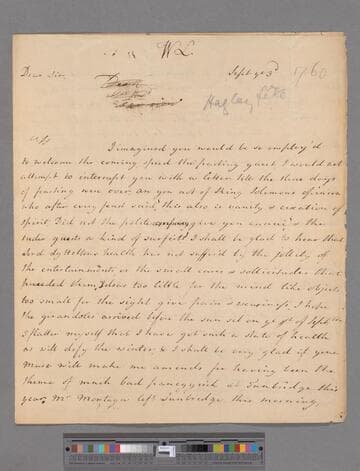 WL.
Dear Sir,
Sept ye 3d
1760
Hagley
I imagined you would be so employ'd
to welcome the coming speed the parting guest I would not
attempt to interrupt you with a letter till the three days
of feasting were over. are you not of King Solomons opinion
who after every feast said this also is vanity & vexation of
spirit Did not the polite give you ennuie & the
ruder guests a kind of surfeit I shall be glad to hear that
Lord Lytteltons health has not suffer'd by the jollity of
the entertainments, or the small cares & sollicitudes that
preceded them, Ideas too little for the mind like objects
too small for the sight give pain & weariness, I hope
the grandetes arrived before the sun set on ye 1st of Septbr
I flatter myself that I have got such a state of health
as will defy the winter, & I shall be very glad if your
Muse will make me amends for having been the
theme of much bad panegyrick at Tunbridge this
year, Mr Montagu left Tunbridge this morning,